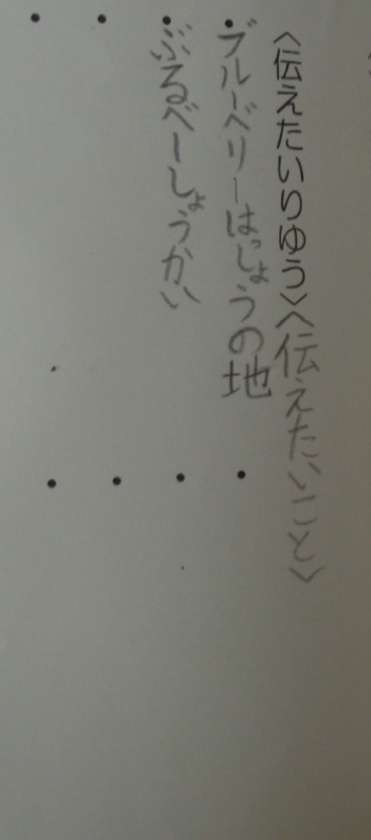 〈伝えたいりゆう〉〈伝えたいこと〉
・ブルーベリーはっしょうの地
・ぶるべーしょうかい